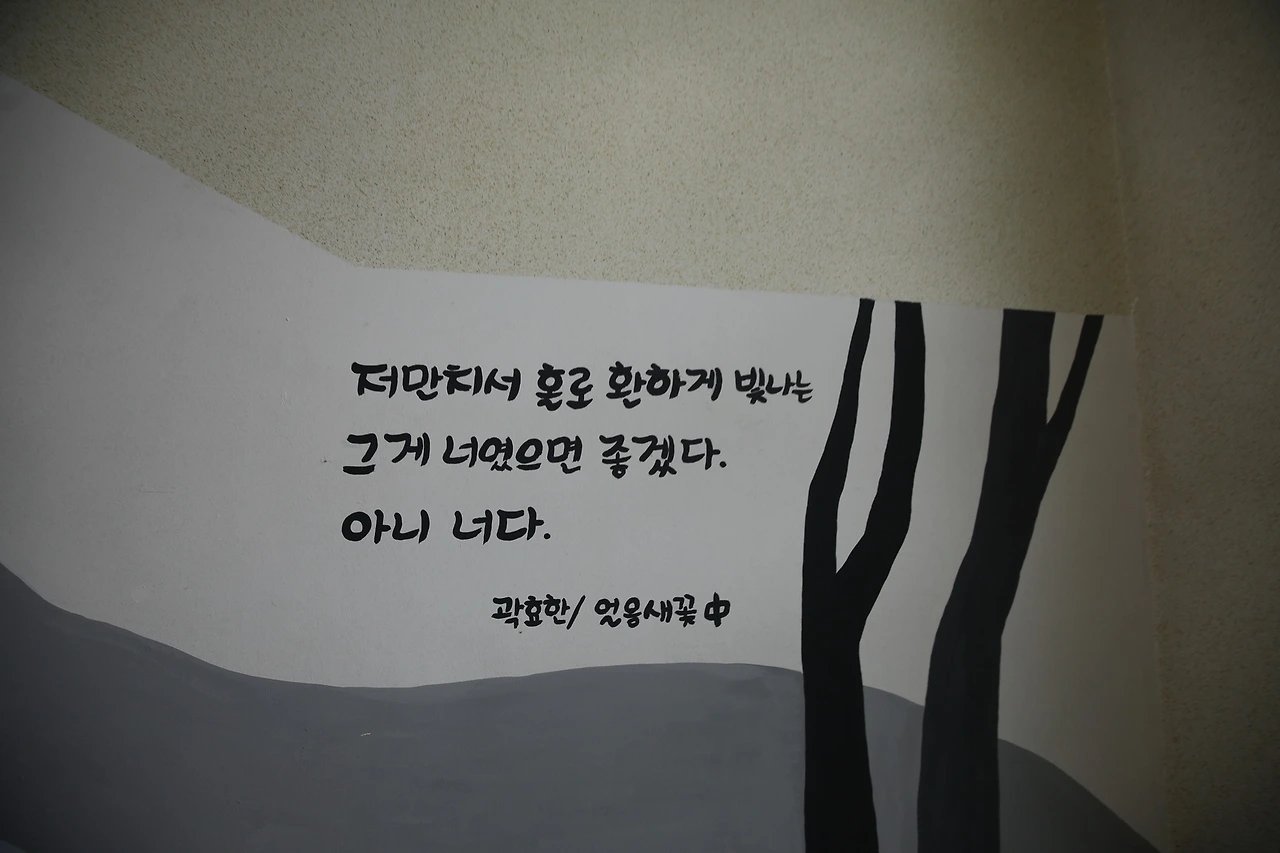 저만치서 홀로 환하게 빛나는
그게 너였으면 좋겠다.
아니 너다.
곽효한/ 얼응새꽃 中